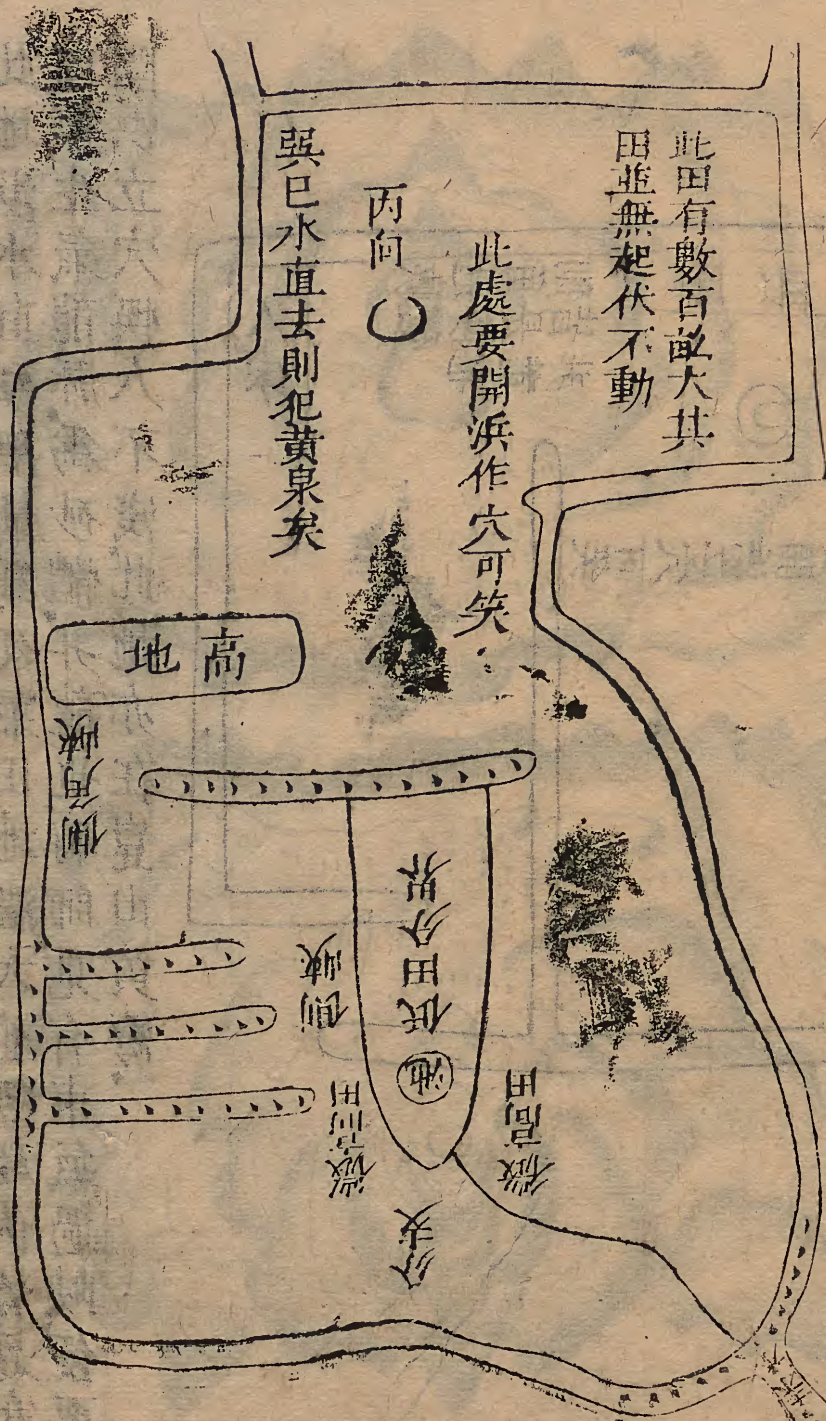 此田有數百畝大其
田並無起伏不動
此處要開浜作穴可笑
丙向
巽巳水直去則犯黄泉矣
高地
側角峽
低田分界
側峽
池
微高田
微高田
分支